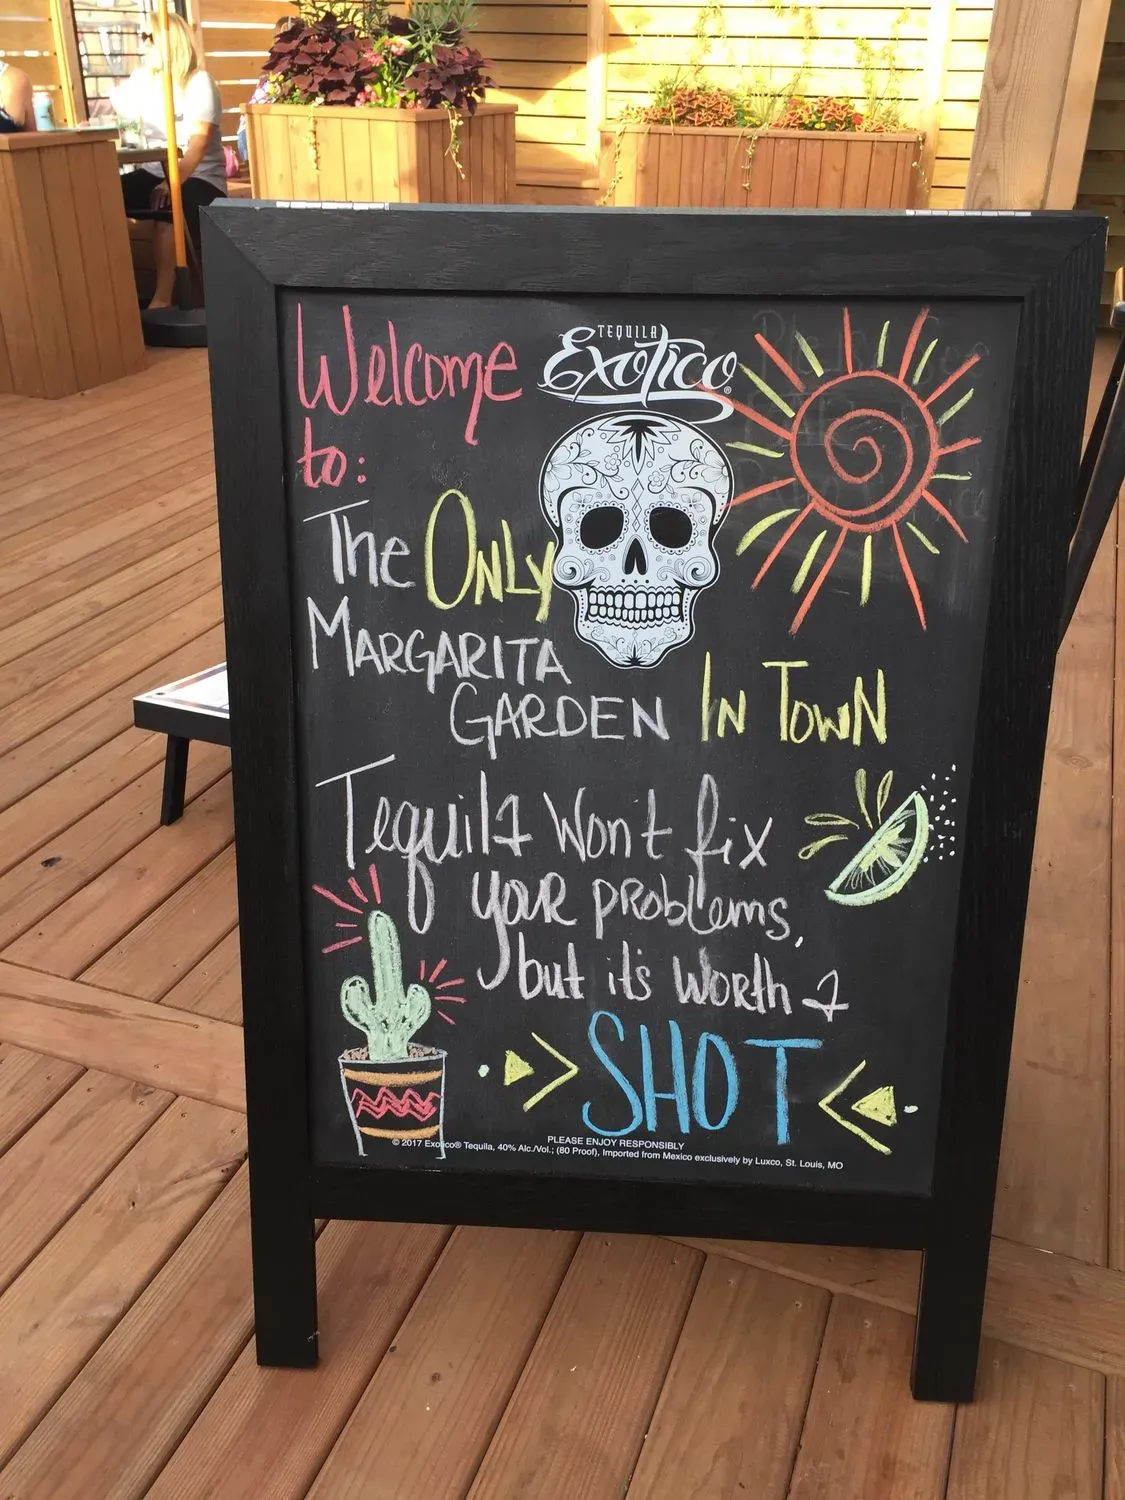 Welcome
to:
TEQUILA
Exotico®
The ONLY
MARGARITA
GARDEN IN TOWN
Tequila Won't fix
your problems,
but it's worth a
SHOT
PLEASE ENJOY RESPONSIBLY
© 2017 Exotico® Tequila, 40% Alc./Vol.; (80 Proof), Imported from Mexico exclusively by Luxco, St. Louis, MO